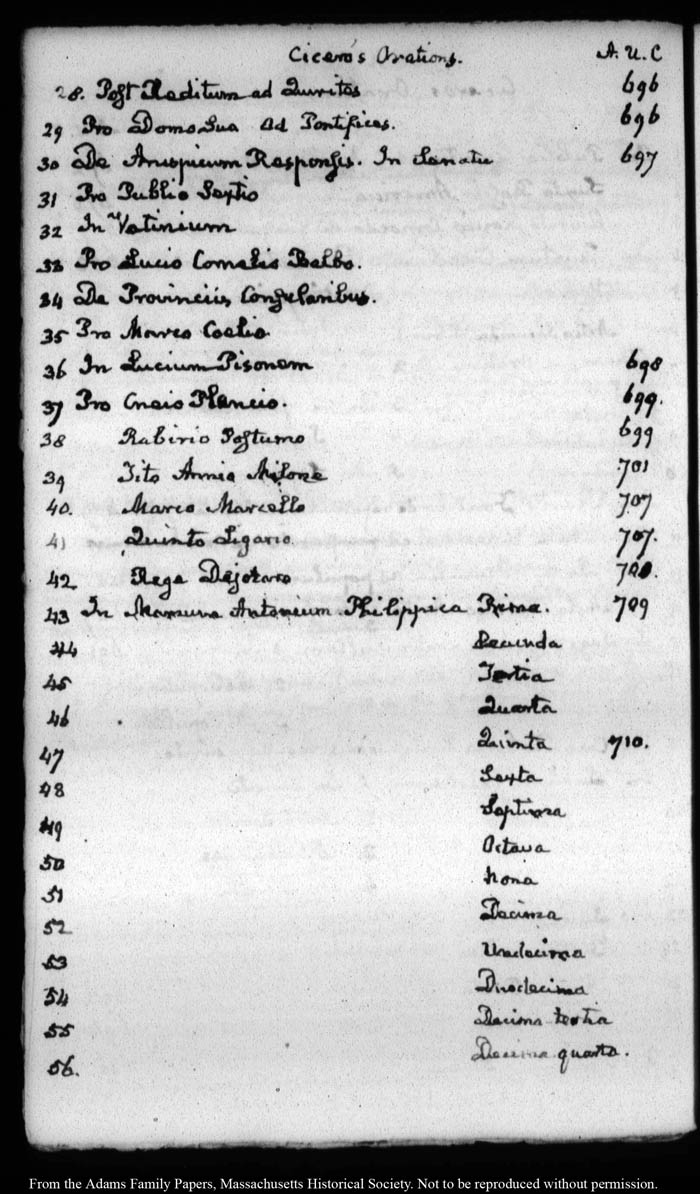 Cicero's Orations. A. U. C
28. Post Reditum ad Quirites 696
29 Pro Domo Sua Ad Pontifices. 696
30 De Aruspicum Responsis. In Senatu 697
31 Pro Publio Sextio
32 In Vatinium
33 Pro Lucio Cornelio Balbo.
34 De Provinciis Consularibus.
35 Pro Marco Coelio
36 In Lucium Pisonem 698
37 Pro Cnaio Plancio. 699.
38 Rabirio Postumo 699
39 Tito Annio Milone 701
40. Marco Marcello 707
41 Quinto Ligario 707.
42 Rege Dejotaro
43 In Marcum Antonium Philippica Prima. 709
44 Secunda
45 Tertia
46 Quarta
47 Quinta 710.
48 Sexta
49 Septima
50 Octava
51 Nona
52 Decima
53 Undecima
54 Duodecima
55 Decima tertia
56. Decima quarta.
From the Adams Family Papers, Massachusetts Historical Society. Not to be reproduced without permission.